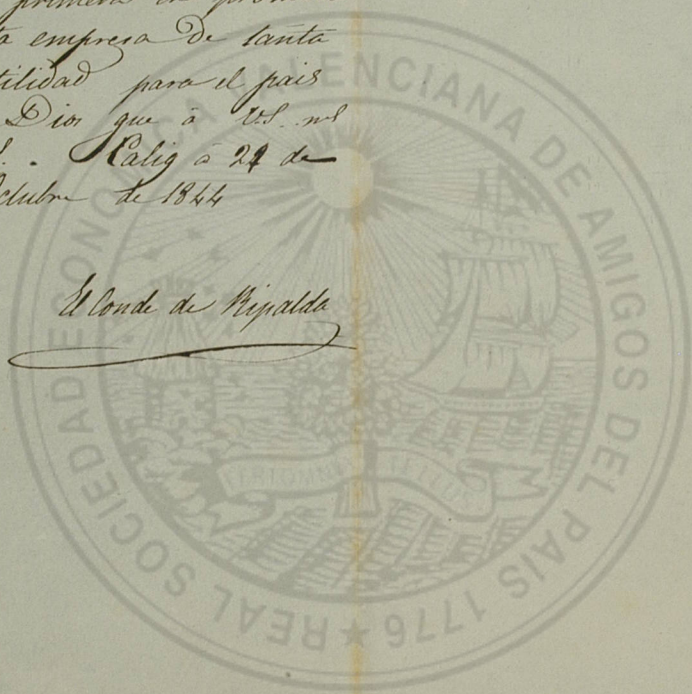 primera en
empresa de tanta
tilidad para el pais
Dios que à VS. ms
Calig à 21 de
ctubre de 1844
El Conde de Ripalda
REAL SOCIEDAD ECONOMICA VALENCIANA DE AMIGOS DEL PAIS 1776
FERT OMNIA TELLUS